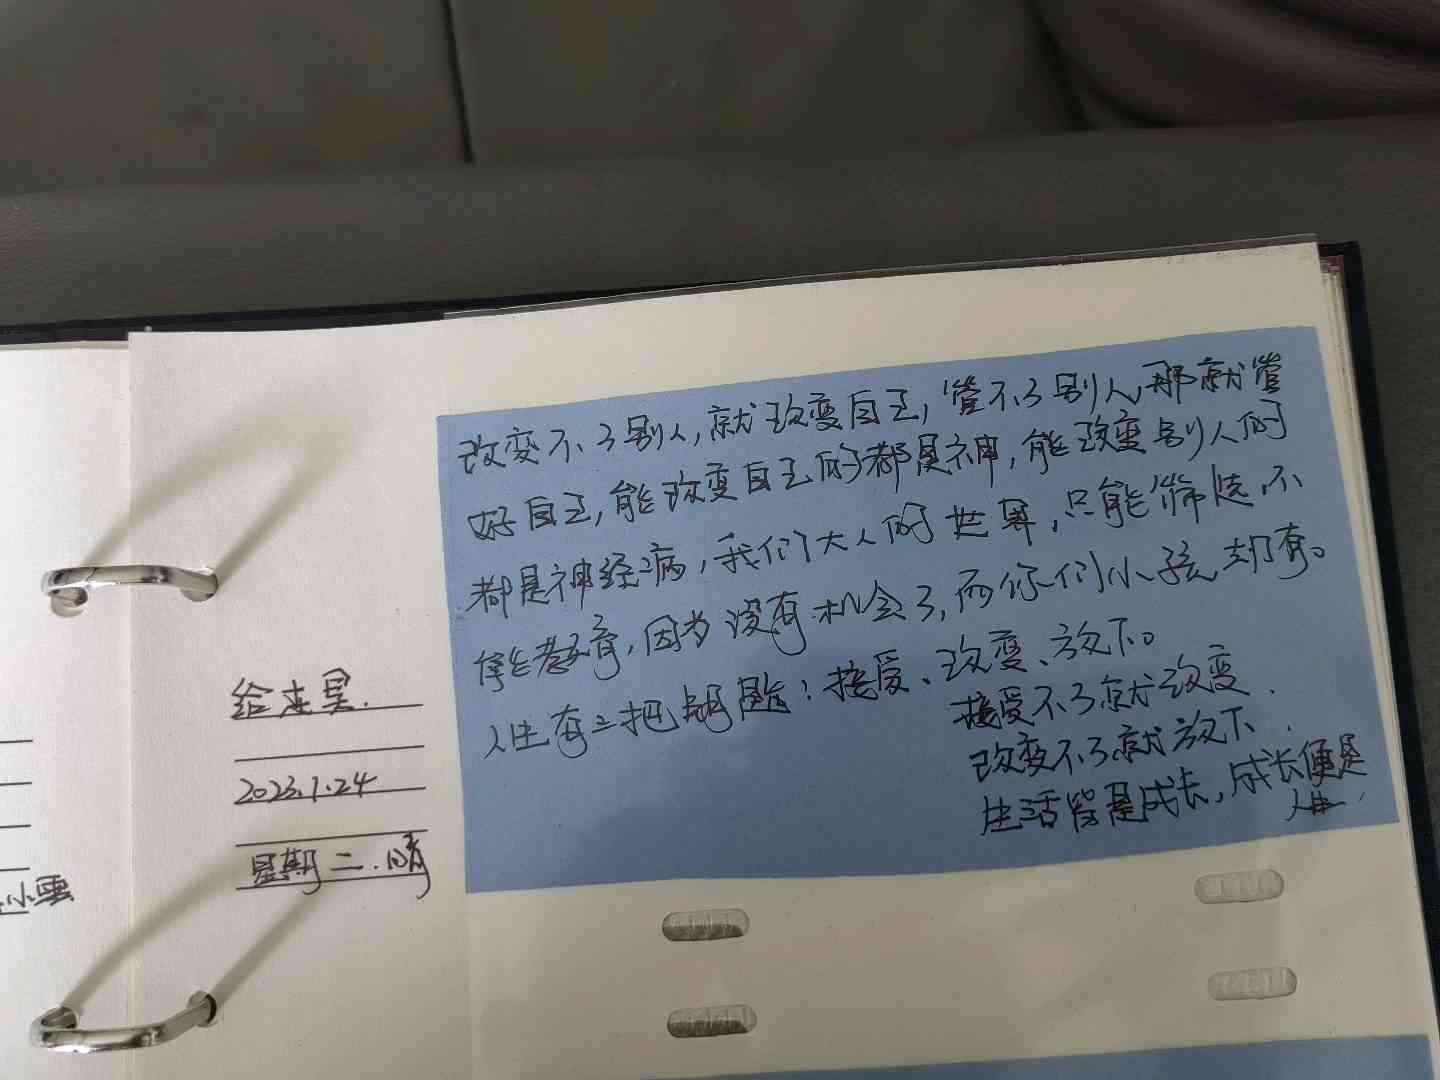 改变不了别人,就改变自己,管不了别人,那就管
好自己,能改变自己的都是神,能改变别人的
都是神经病,我们大人的世界,只能筛选,不
能教育,因为没有机会了,而你们小孩却有。
人生有三把钥匙:接受、改变、放下。
接受不了就改变.
改变不了就放下.
生活皆是成长,成长便是
人生.
给志昊.
2023.1.24
星期二.晴
小雪